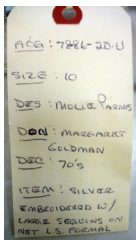 ACQ: 7886-20-U
SIZE: 10
DES: MOLLIE PARNIS
DON: MARGARET
GOLDMAN
DEC: 70'S
ITEM: SILVER
EMBROIDERED W/
LARGE SEQUINS ON
NET L.S. FORMAL